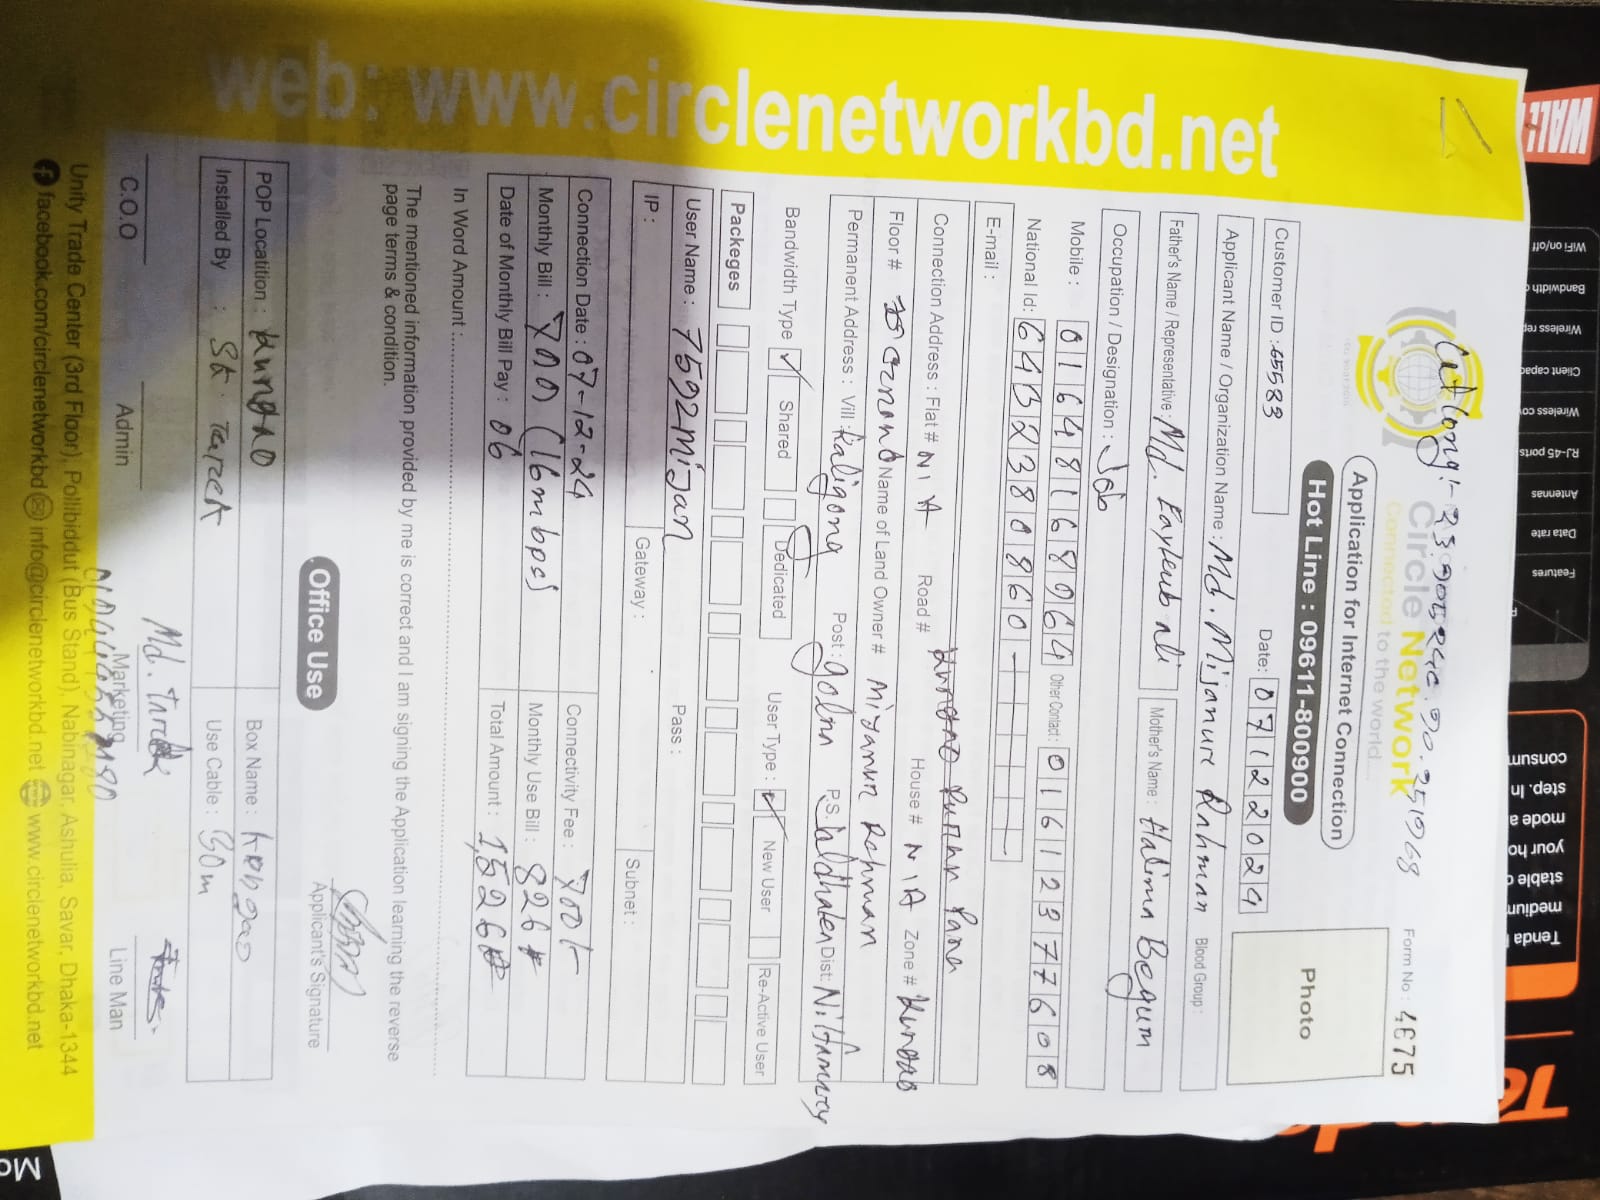 web: www.circlenetworkbd.net
Circle Network
Connected to the world....
Form No : 4675
Application for Internet Connection
Hot Line : 09611-800900
Photo
Customer ID : 65583
Date: 07122024
Applicant Name / Organization Name : Md. Mijanure Rahman
Blood Group :
Father's Name / Representative : Md. Eaykub Ali
Mother's Name : Halima Begum
Occupation / Designation : Job
Mobile : 01648168064
Other Contact: 01612377608
National Id: 6432380860
E-mail :
Connection Address : Flat # N/A Road # House # N/A Zone #
Floor # Name of Land Owner # Mizanur Rahman
Permanent Address : Vill: Kaligong Post : golna P.S. Jaldhaka Dist: Nilfamary
Bandwidth Type Shared Dedicated User Type : New User Re-Active User
Packeges
User Name : 7592mijan Pass :
IP : Gateway : Subnet :
Connection Date : 07-12-24 Connectivity Fee : 700/-
Monthly Bill : 700 (16mbps) Monthly Use Bill : 826
Date of Monthly Bill Pay : 06 Total Amount : 1,526
In Word Amount :
The mentioned information provided by me is correct and I am signing the Application learning the reverse
page terms & condition.
Applicant's Signature
Office Use
POP Locatition : Box Name :
Installed By : Use Cable : 30m
C.O.O Admin Marketing Line Man
Unity Trade Center (3rd Floor), Pollibiddut (Bus Stand), Nabinagar, Ashulia, Savar, Dhaka-1344
facebook.com/circlenetworkbd info@circlenetworkbd.net www.circlenetworkbd.net
WiFi on/off
RJ-45 ports
Antennas
Data rate
Features
consum
step. In
mode a
your ho
stable c
medium
Tenda